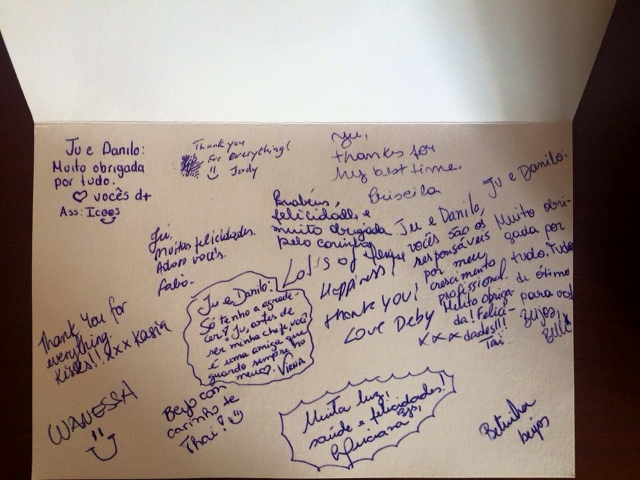 Ju e Danilo:
Muito obrigada
por tudo.
♡ vocês d+
Ass: Icoos
Thank you
For everything!
Jody
Ju,
thanks for
my best time.
Priscila
Ju,
Muitas felicidades.
Adoro vocês.
Fabi.
Parabéns,
felicidades e
muito obrigada
pelo carinho
Lots of
Happiness!
thank you!
Love Deby
xxx
Ju e Danilo,
vocês são os
responsáveis
por meu
crescimento
profissional.
Muito obriga-
da! Felici-
dades!!!
Tai.
Ju e Danilo:
Muito obri-
gada por
tudo. Tudo
de ótimo
para vcs!
Beijos,
Ju e Danilo:
Só tenho a agrade-
cer! Ju, antes de
ser minha chefe, você
é uma amiga que
guardo sempre no
meu ♡. Virna
Thank You for
everything
Kisses!! xxx Kasia
WANESSA
Beijo com
carinho te
Thai!
Muita luz,
saúde e felicidades!
Bjs,
Luciana
Betinha
beijos